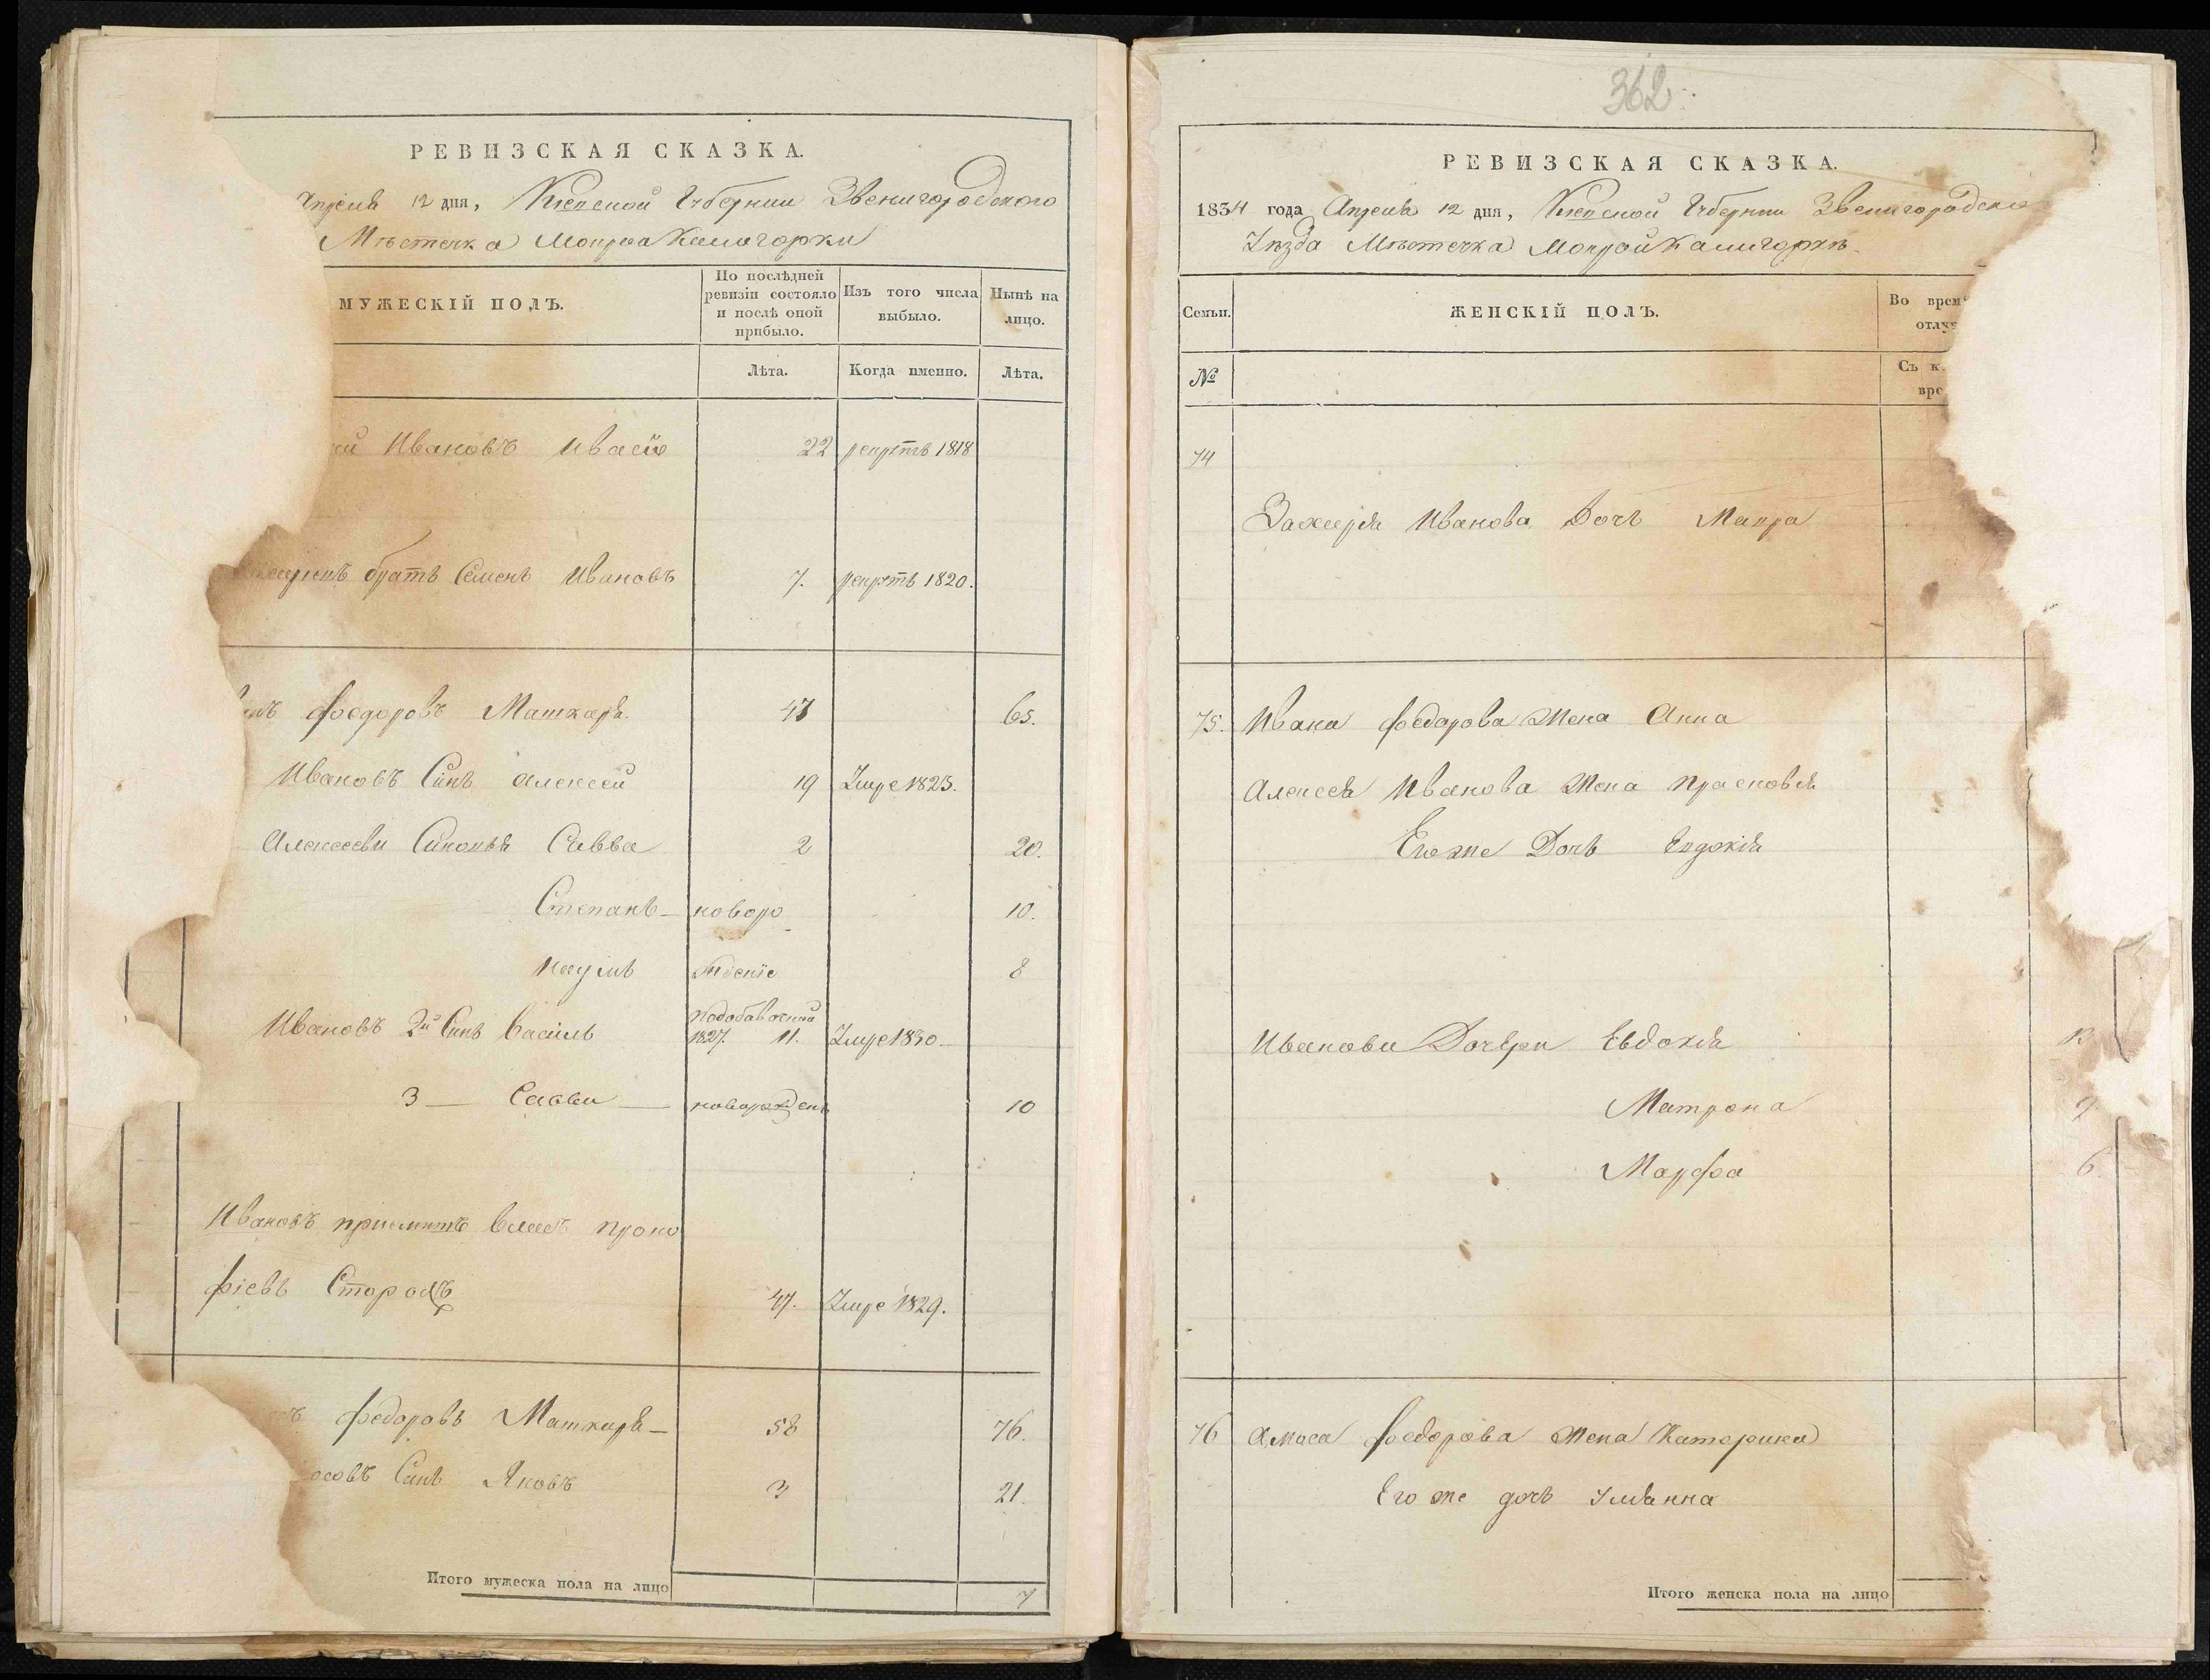 РЕВИЗСКАЯ СКАЗКА.
Апреля 12 дня, Киевской Губернии Звенигородского
Мѣстечка Мокрои Калигорки
МУЖЕСКІЙ ПОЛЪ.
По послѣдней ревизіи состояло и послѣ оной прибыло.
Изъ того числа выбыло.
Нынѣ на лицо.
Лѣта.
Когда именно.
Лѣта.
Ивановъ 22 рекрутъ 1818
братъ Семенъ Ивановъ 7. рекрутъ 1820.
Феодоровъ Машкаря 47 65.
Ивановъ Синъ Алексей 19 Умре 1823.
Алексееви Синовья Савва 2 20.
Степанъ — новоро 10.
Наумъ жденіе 8
Ивановъ 2й Синъ Василь подобавочной 1827. 11. Умре 1830.
3 — Савва —новоржденъ 10
Ивановъ приемишъ Власъ Проко
фіевъ 47. Умре 1829.
Федоровъ Машкаря — 58 76.
осовъ Синъ Яковъ 3 21.
Итого мужеска пола на лицо 7
362
РЕВИЗСКАЯ СКАЗКА.
1834 года Апреля 12 дня, Киевской Губернии Звенигородско
Уезда Мѣстечка Мокрой Калигорки
Семьи.
ЖЕНСКІЙ ПОЛЪ.
Во врем
отлу
№
Съ к
вре
74
Захария Иванова Дочь Макра
75. Ивана Федорова Жена Анна
Алексея Иванова Жена Прасковья
Его же Дочь Евдокія
Иванови Дочери Евдокія
Матрона 9
Марфа 6.
76 Амоса Феодорова Жена Катерина
Его же дочь Улианна
Итого женска пола на лицо